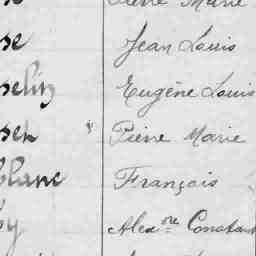 Pierre Marie
se Jean Louis
selin Eugène Louis
sen Pierre Marie
blanc François
y Alexre Constant